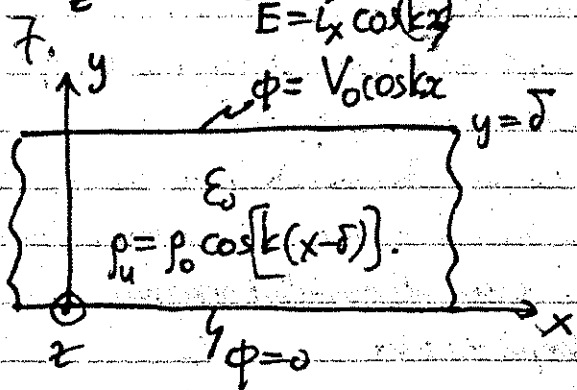 E = i_x cos(kx)
7.
y
ϕ = V₀ cos kx
y = δ
ε₀
ρ_u = ρ₀ cos[k(x-δ)].
x
z
ϕ = 0